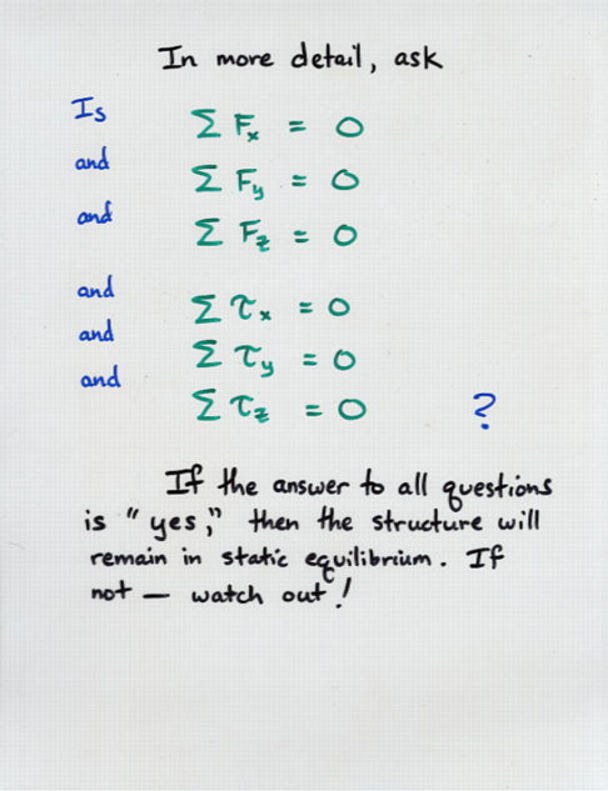 In more detail, ask
Is Σ Fx = 0
and Σ Fy = 0
and Σ Fz = 0
and Σ τx = 0
and Σ τy = 0
and Σ τz = 0 ?
If the answer to all questions
is "yes," then the structure will
remain in static equilibrium. If
not — watch out!